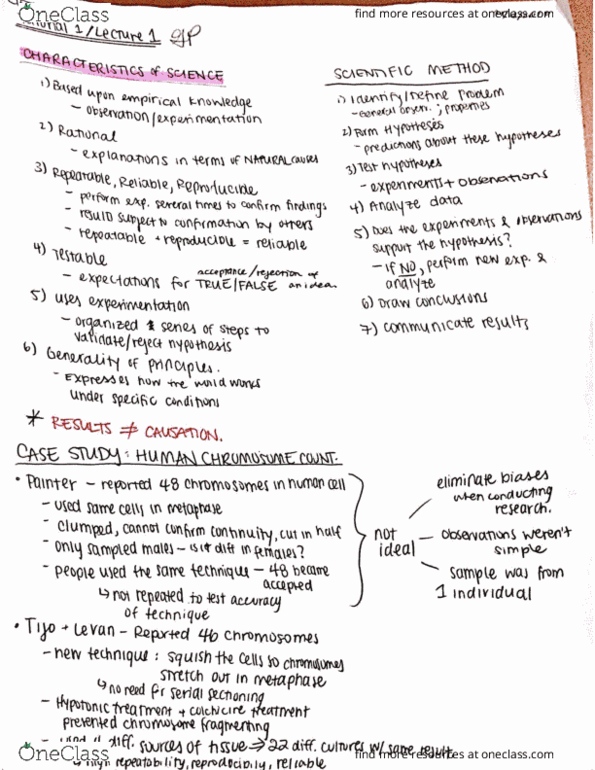 OneClass
find more resources at oneclass.com
Tutorial 1/Lecture 1
CHARACTERISTICS of SCIENCE
1) Based upon empirical knowledge
- observation/experimentation
2) Rational
- explanations in terms of NATURAL CAUSES
3) Repeatable, Reliable, Reproducible
- perform exp. several times to confirm findings
- result subject to confirmation by others
- repeatable + reproducible = reliable
4) Testable
acceptance/rejection of
- expectations for TRUE/FALSE an idea
5) uses experimentation
- organized & series of steps to
validate/reject hypothesis
6) Generality of principles.
- Expresses how the world works
under specific conditions
* RESULTS ≠ CAUSATION.
SCIENTIFIC METHOD
1) Identify/Define Problem
- General observ. ; properties
2) Form Hypotheses
- predictions about these hypotheses
3) Test hypotheses
- experiments + observations
4) Analyze data
5) Does the experiments & observations
support the hypothesis?
- if NO, perform new exp. &
analyze
6) Draw conclusions
7) communicate results
CASE STUDY: HUMAN CHROMOSOME COUNT.
• Painter - reported 48 chromosomes in human cell
- used same cells in metaphase
- clumped, cannot confirm continuity, cut in half
- only sampled males - is it diff in females?
- people used the same technique - 48 became
accepted
↳ not repeated to test accuracy
of technique
not
ideal
eliminate biases
when conducting
research.
observations weren't
simple
sample was from
1 individual
• Tijo + Levan - Reported 46 chromosomes
- new technique: squish the cells so chromosomes
stretch out in metaphase
↳ no need for serial sectioning
- Hypotonic treatment + colchicine treatment
prevented chromosome fragmenting
diff. sources of tissue ⇒ 22 diff. cultures w/ same result
↳ high repeatability, reproducibily, reliable
OneClass
find more resources at oneclass.com